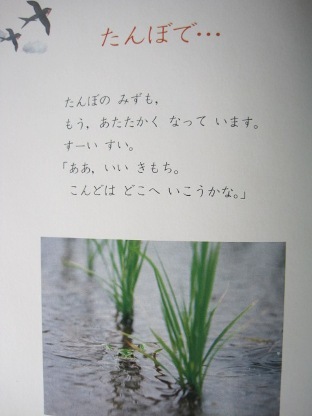 たんぼで…
たんぼの みずも,
もう, あたたかく なって います。
すーい すい。
「ああ, いい きもち。
こんどは どこへ いこうかな。」